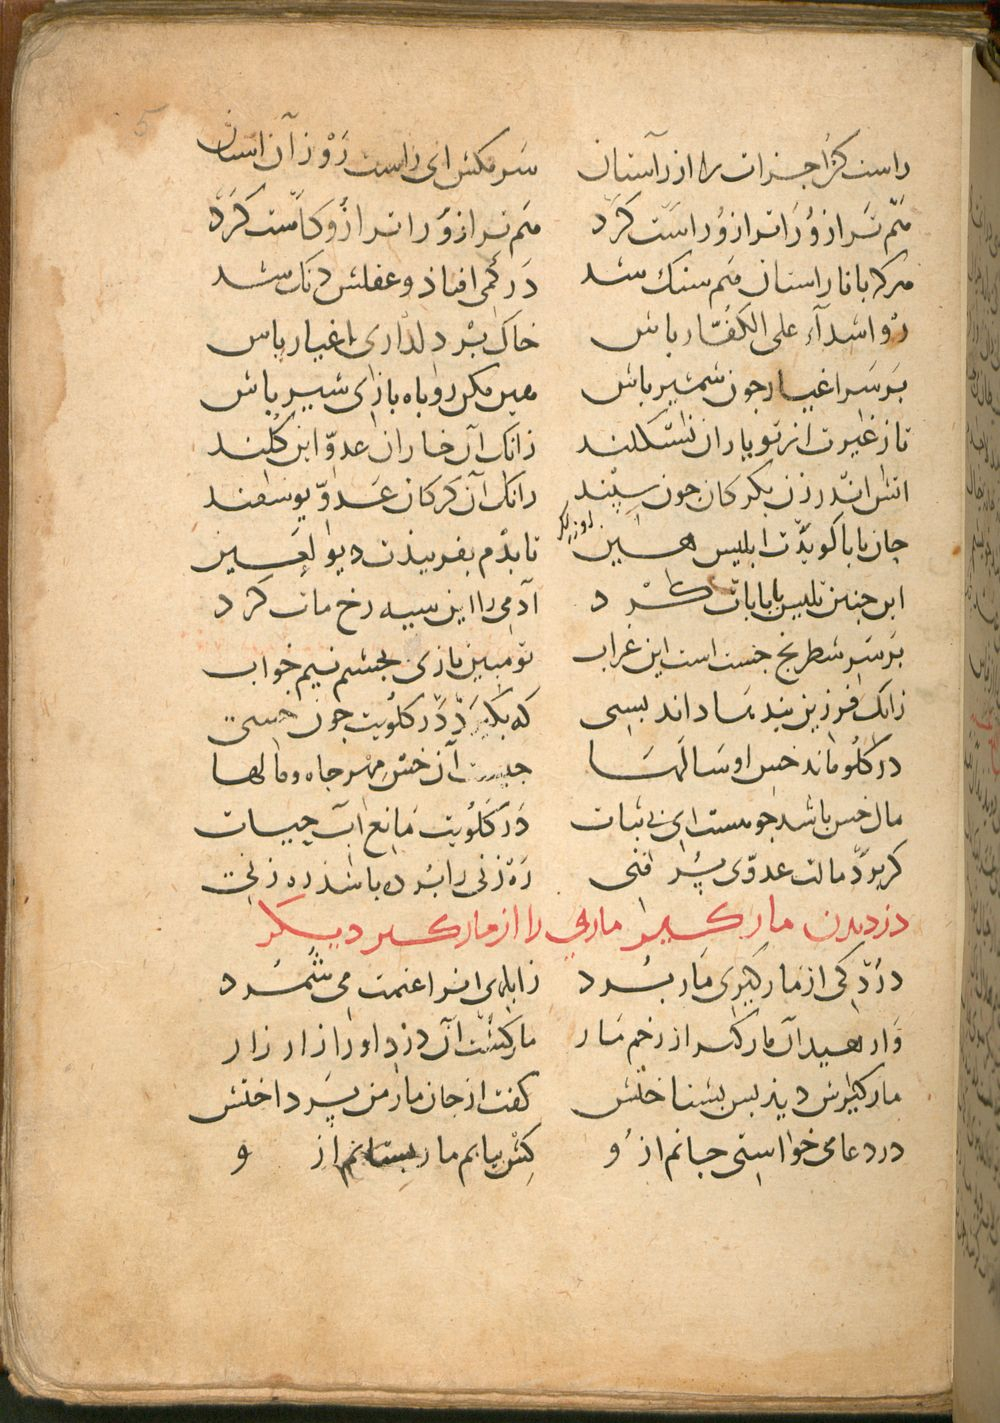 راست کن اجزات را از راستان سر مکش ای راست رو زان آستان
هم ترازو را ترازو راست کرد هم ترازو را ترازو کاست کرد
هرکه با ناراستان هم سنک شد در کمی افتاذ و عقلش دنک شد
رو اشداء علی الکفار باش خاک بر دلداری اغیار باش
بر سر اغیار جون شمشیر باش هین مکن روباه بازی شیر باش
تا ز غیرت از تو یاران نشکلند زانک آن خاران عدو این کلند
اتش اندر زن بکرکان جون سپند زانک آن کرکان عدو یوسفند
جان بابا کویدت ابلیس هین تا بدم بفریبذت دیو لعین
این جنین تلبیس با بابات کرد آدمی را این سیه رخ مات کرد
بر سر شطرنج جست است این غراب تو مبین بازی بجشم نیم خواب
زانک فرزین بندها داند بسی که بکیرد در کلویت جون خسی
در کلو ماند خس او سالها جیست آن خس مهر جاه و مالها
مال خس باشد جو هست ای بی ثبات در کلویت مانع آب حیات
کر برد مالت عدوی پر فنی ره زنی را برده باشذ ره زنی
دزدیدن مار کیر ماری را از مار کیر دیکر
دزدکی از مارکیری مار برد ز ابلهی انرا غنمت می شمرد
وا رهید آن مارکیر از زخم مار مار کشت آن دزد او را زار زار
مارکیرش دید بس بشناختش کفت از جان مار من پرداختش
در دعا می خواستی جانم ازو کش بیابم مار بستانم ازو